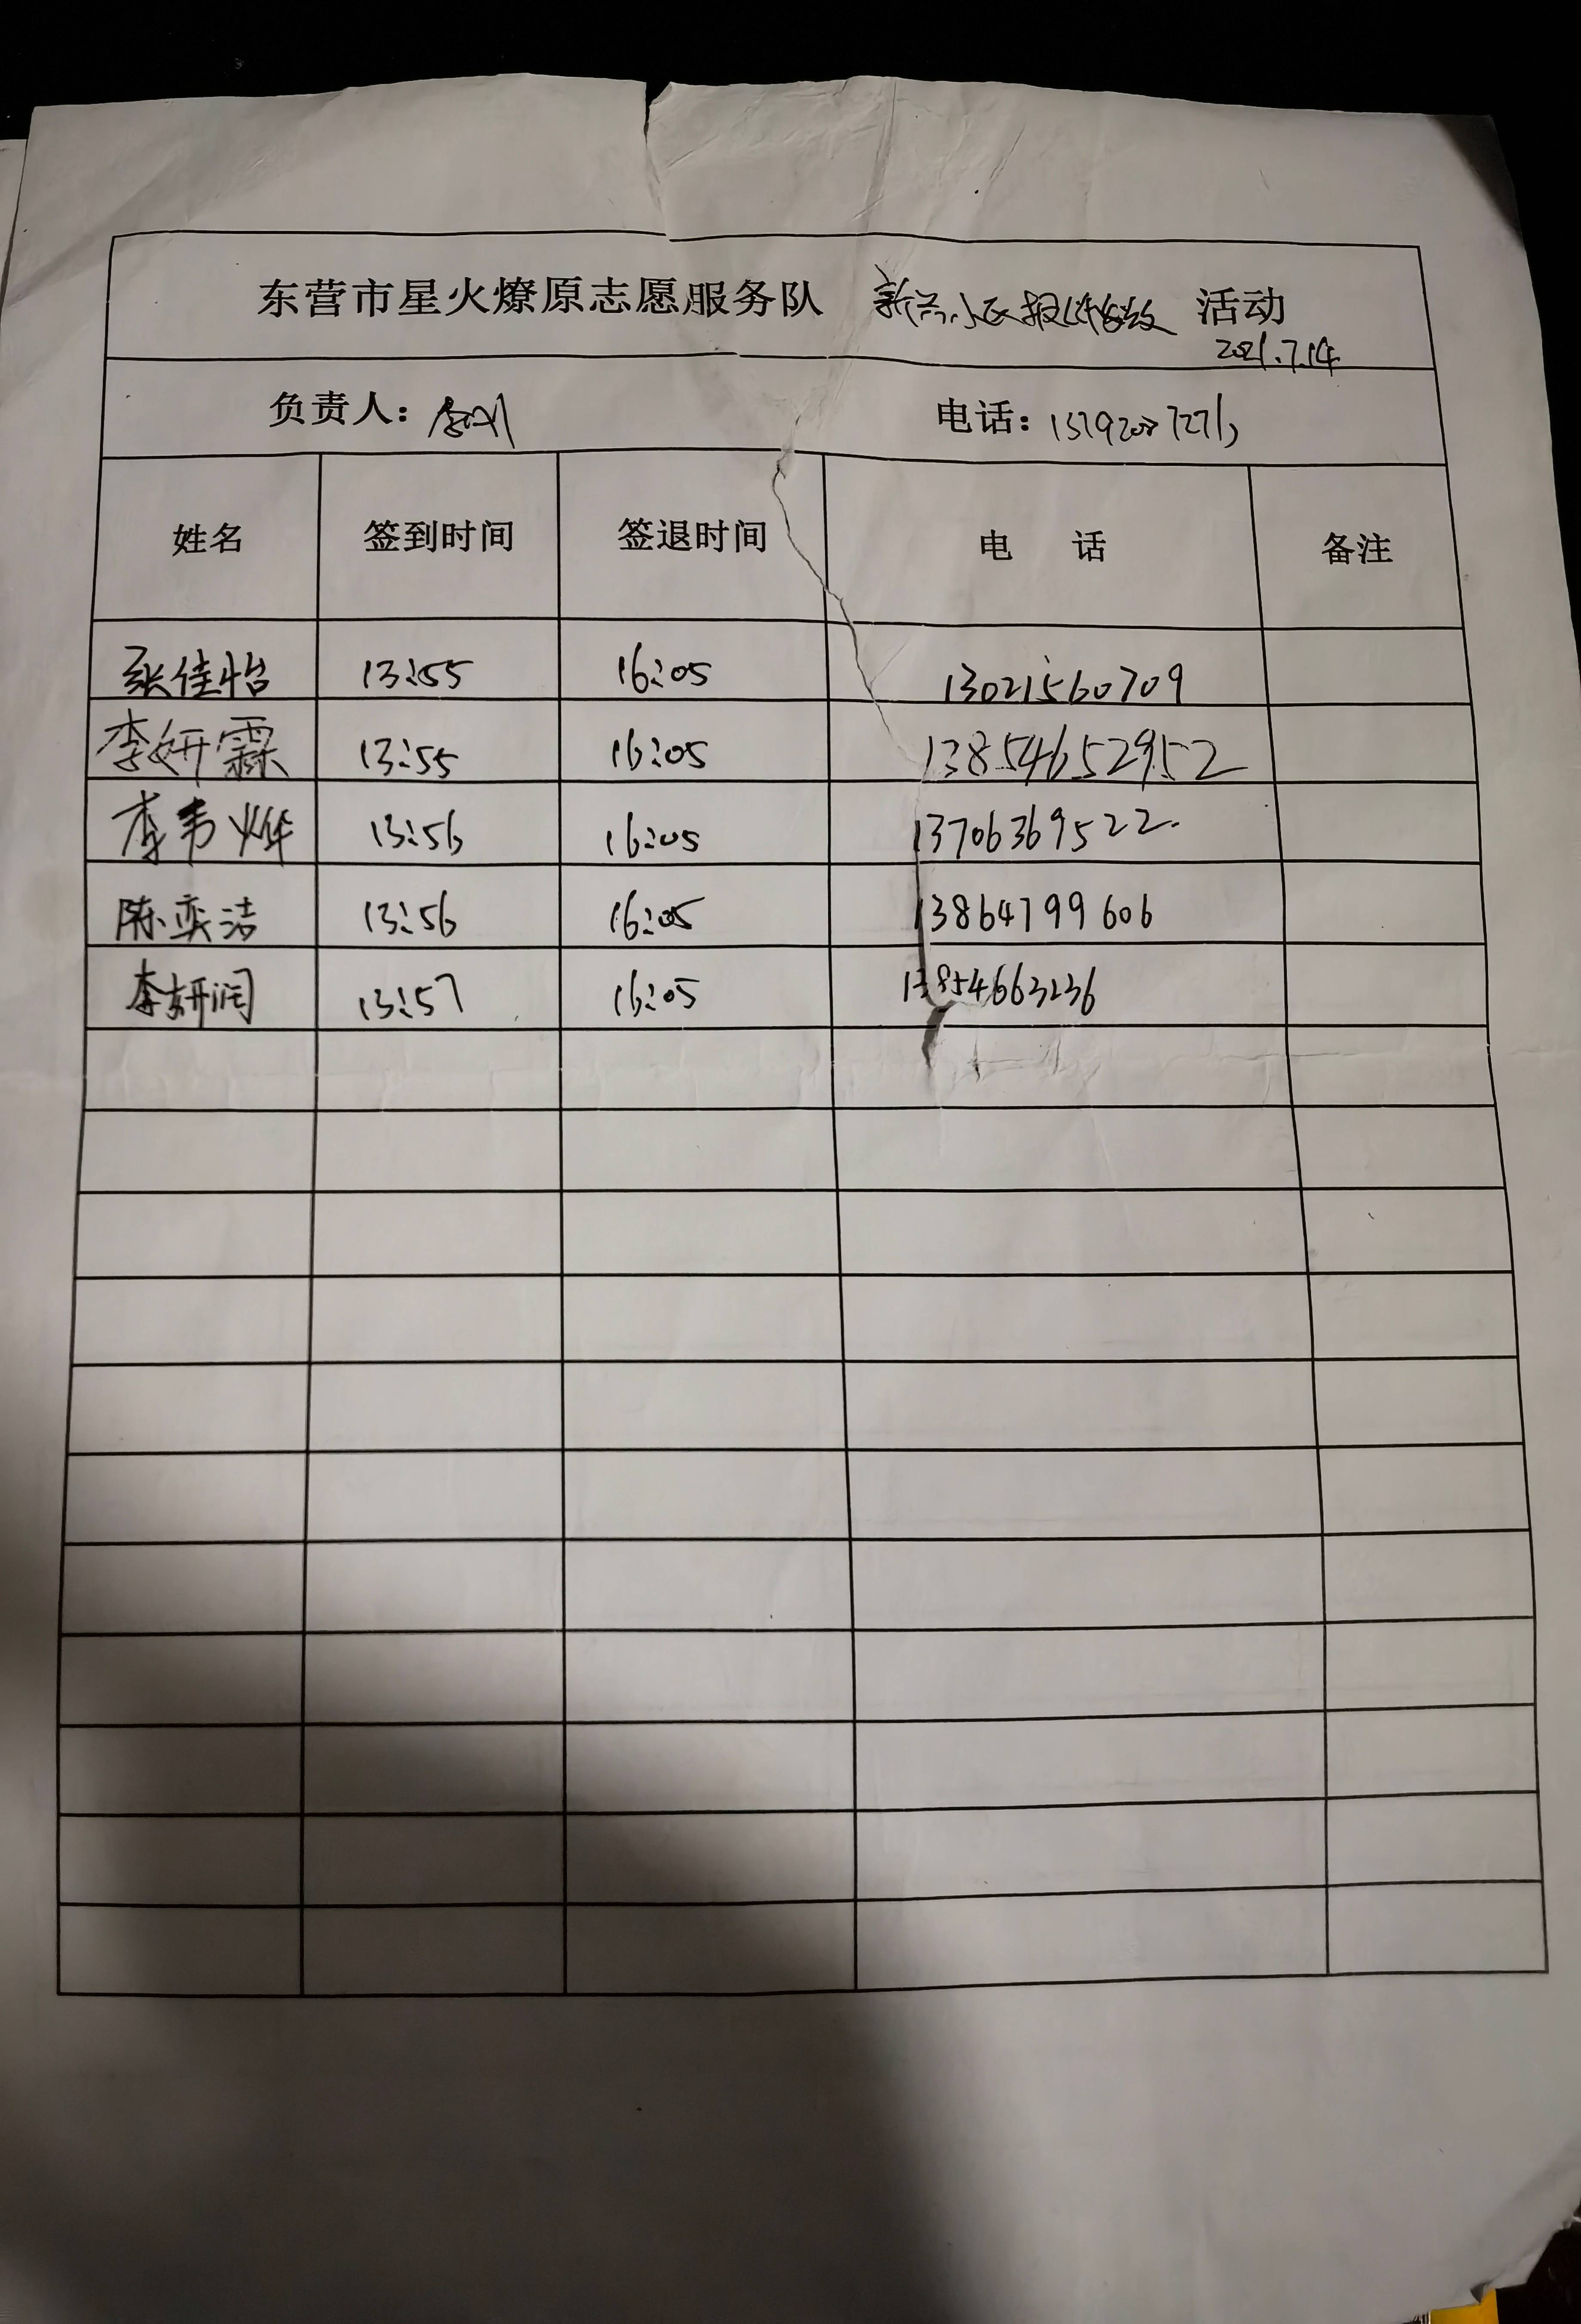 东营市星火燎原志愿服务队 新 小区 活动
2021.7.14
负责人： 电话：
姓名 签到时间 签退时间 电 话 备注
张佳怡 13:55 16:05 13021560709
李妍霖 13:55 16:05 13854652952
李韦烨 13:56 16:05 13706369522
陈奕洁 13:56 16:05 13864799606
李妍润 13:57 16:05 13854663236